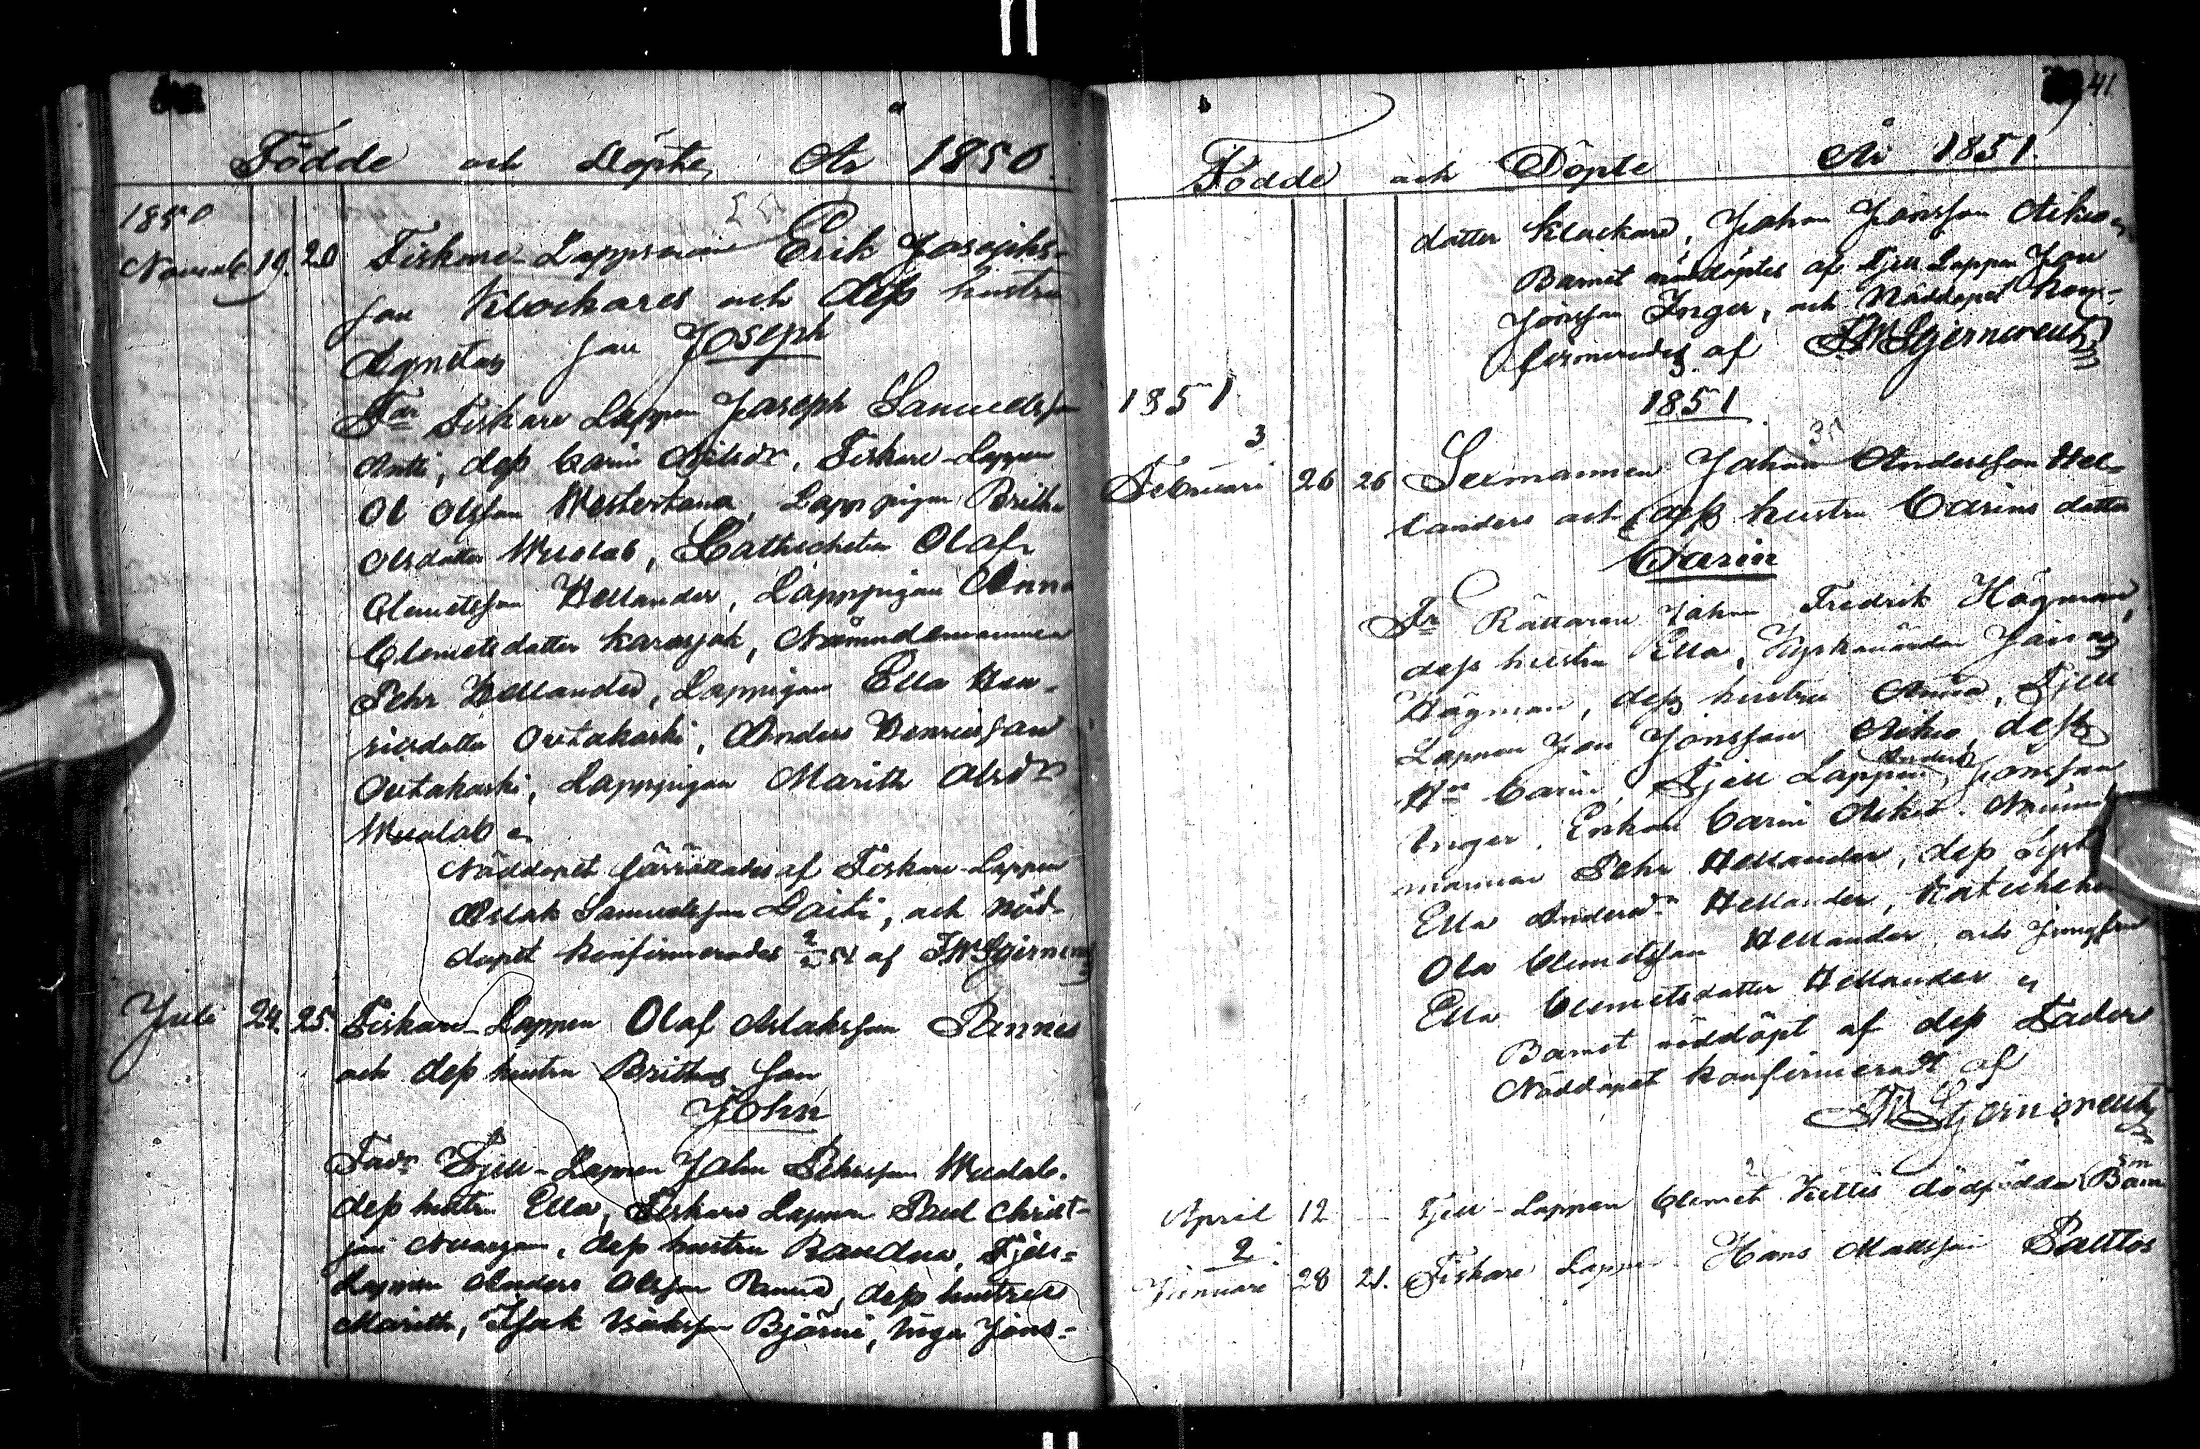 Födde och Döpte, År 1850.
1850
Novemb. 19. 20 Fiskare-Lappman Erik Josephs-
son Klockares och deß hustru
Agnetas son Joseph
Fadr Fiskare Lappen Joseph Samuelsson
deß Carin Nilsdr, Fiskare-Lappen
Ol Olsson Westertana, Lapppigan Britha
Olsdatter Wuolab, Cathecheten Olaf
Clemetsson Hellander, Lapppigan Anna
Clemetsdatter Karasjok, Nämndemannen
Pehr Hellander, Lapppigan Ella Hen-
ricsdatter Outakoski, Anders Henricsson
Outakoski, Lapppigan Marith Olsdr
Wuolab
Nöddopet förrättades af Fiskare-Lappen
Aslak Samuelsson Laiti, och Nöd-
dopet konfirmerades 51 af
Juli 24. 25. Fiskare-Lappen Olaf Aslaksson Pannes
och deß hustru Brithas son
John
Fadr Fjell-Lappen John Pehrsson Wuolab.
deß hustru Ella, Fiskare Lappen Paul Christ-
deß hustru Raudna, Fjell-
Lappen Anders Olsson deß hustru
Marith, Isak Isaksson Björni, Inga Jöns-
41
Födde och Döpte År 1851.
datter Klockare, Johan Jönsson Aikio
Barnet nöddöptes af Fjell Lappen Jon
Jönsson Inger, och Nöddopet kon-
firmerades af
1851
1851
3
Februari 26 26 Sexmannen Johan Andersson Hel-
landers och deß hustru Carins datter
Carin
Fr Rättaren John Fredrik Högman,
deß hustru Ella, Kyrkovärden
Högman, deß hustru Anna, Fjell
Lappen Jon Jönsson Aikio, deß
Hu Carin, Fjell Lappen Anders Jönsson
Inger, Enkan Carin Aikio. Nämnd
mannen Pehr Hellander, deß
Ella Andersdr Hellander, Katecheten
Ola Clemetsson Hellander och Jungfru
Ella Clemetsdatter Hellander
Barnet nöddöpt af deß Fader
Nöddopet konfirmeradt af
April 12 Fjell-Lappen Clemet dödfödda Barn
2
Januari 28 21. Fiskare Lappen Hans Mattsson Pauttos